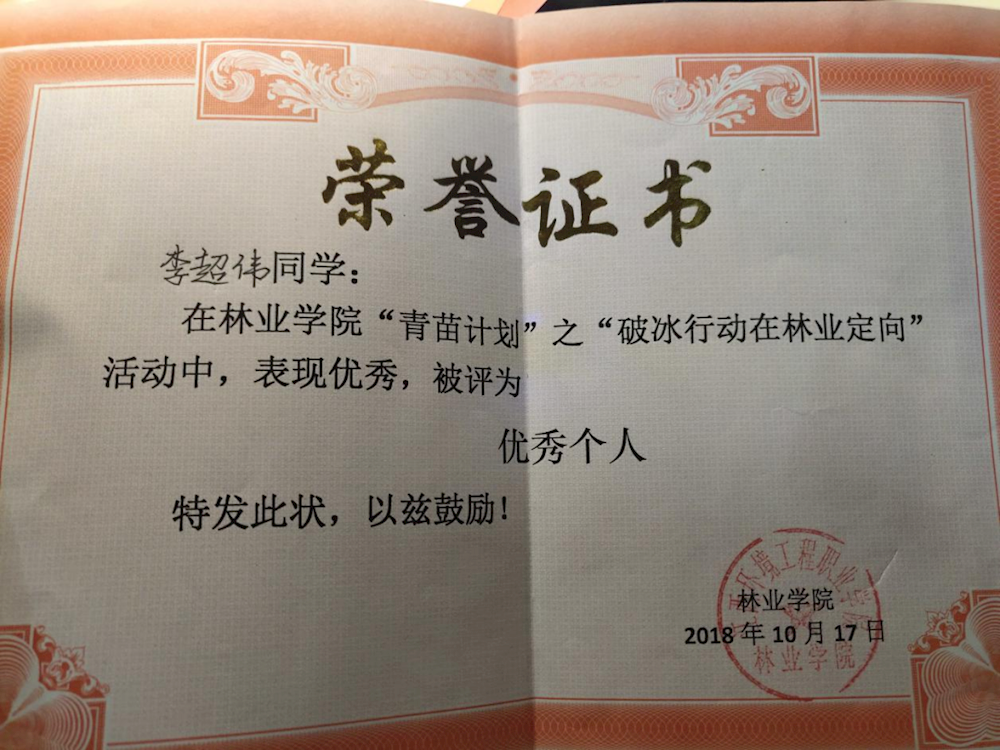 荣誉证书
李超伟同学：
在林业学院“青苗计划”之“破冰行动在林业定向”
活动中，表现优秀，被评为
优秀个人
特发此状，以兹鼓励！
环境工程职业学院
林业学院
2018年10月17日
林业学院